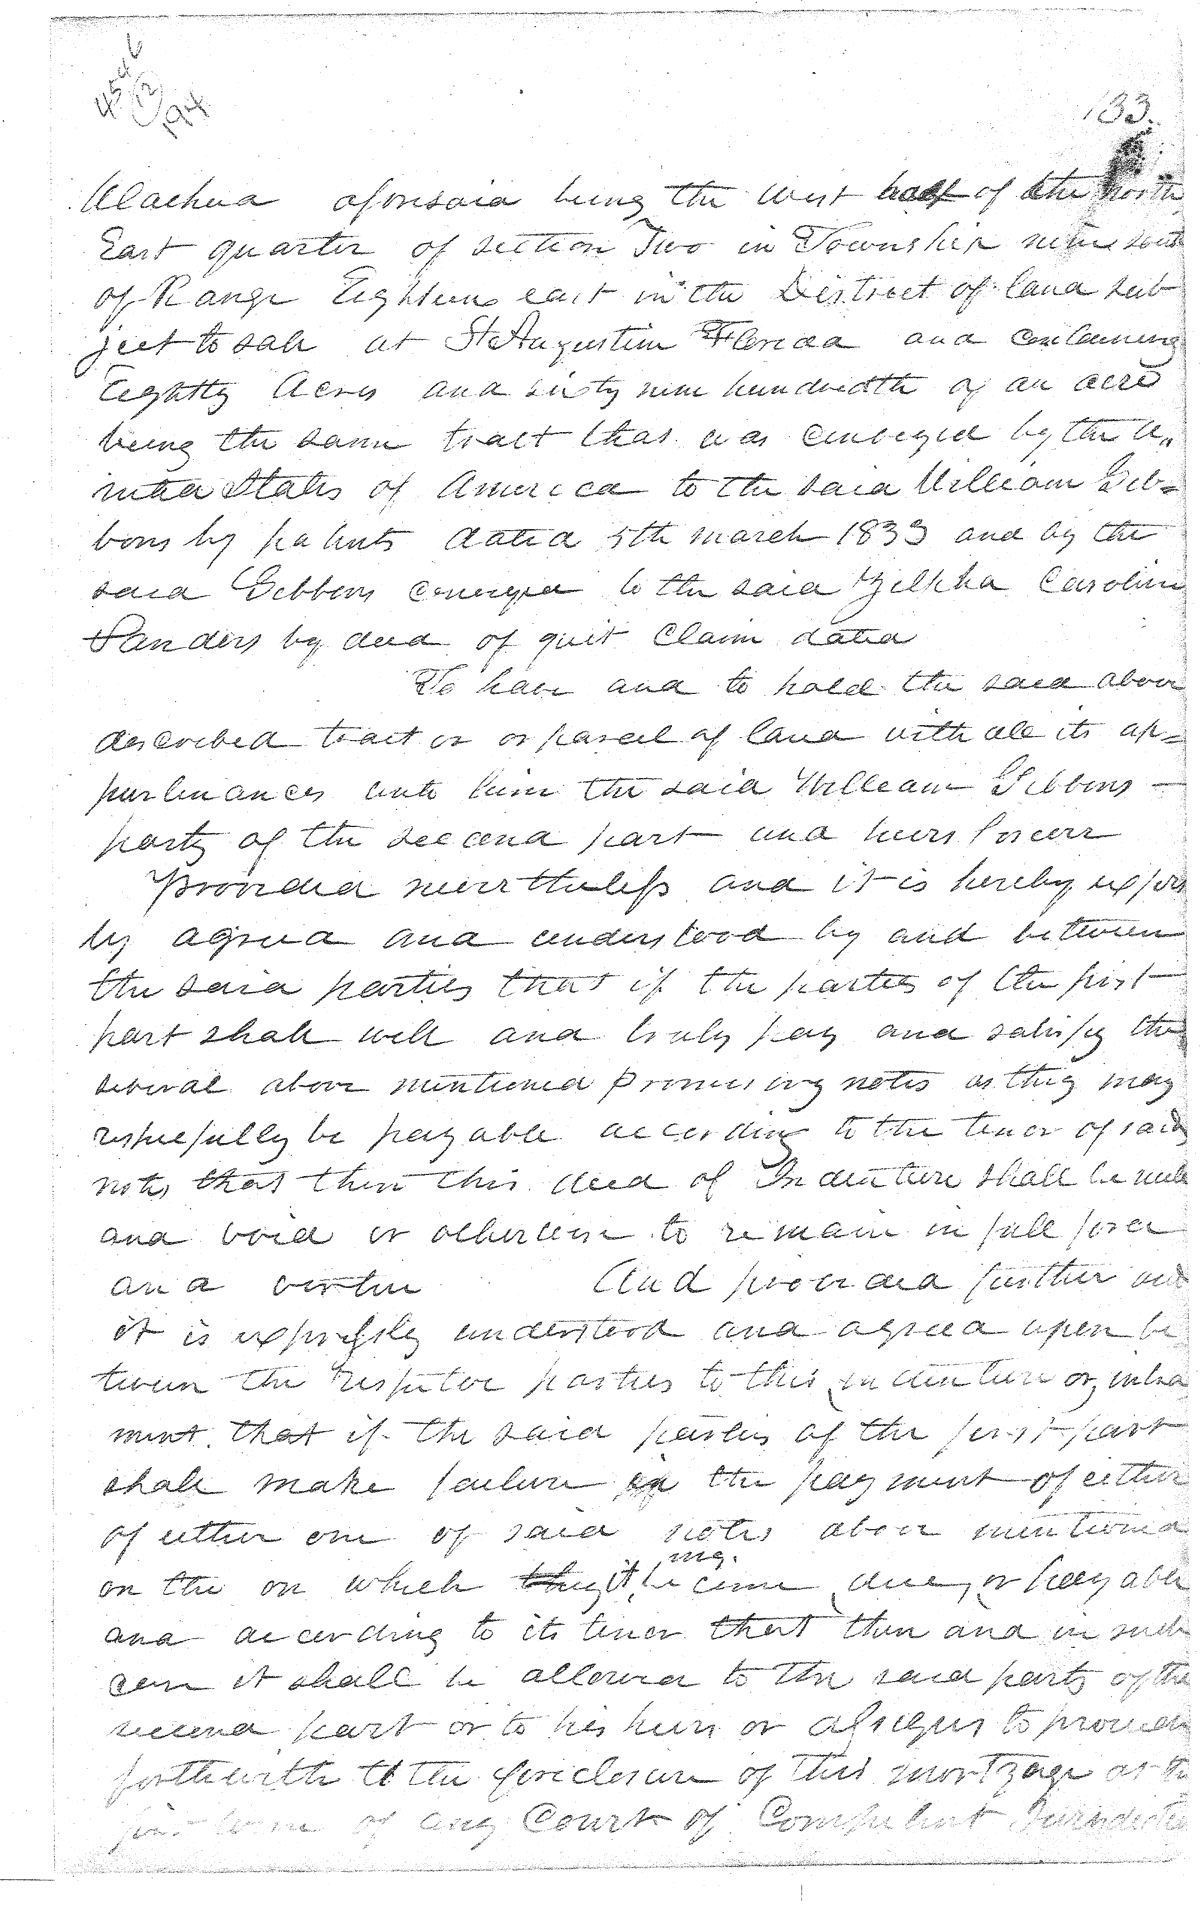 4546
(12)
194
133.
Alachua aforesaid being the west half of the north
East quarter of section Two in Township nine south
of Range Eighteen east in the District of land sub
ject to sale at St Augustine Florida and containing
Eightly Acres and sixty nine hundredth of an acre
being the same tract that was conveyed by the U„
nited States of America to the said William Gib=
bons by patents dated 5th march 1833 and by the
said Gibbons conveyed to the said Zilpha Caroline
Sanders by deed of quit Claim dated
To have and to hold the said above
described tract or or parcel of land with all its ap=
purtinances unto him the said William Gibbons —
party of the second part and heirs forever
Provided neverthelefs and it is hereby expres
ly agreed and understood by and between
the said parties that if the parties of the first
part shall well and truly pay and satisfy the
several above mentioned promissory notes as they may
respecfully be payable according to the tenor of said
notes that then this deed of Indenture shall be null
and void or otherwise to remain in full force
and virtue And provided further and
it is exprefsly understood and agreed upon be
tween the respective parties to this indenture or instru
ment that if the said parties of the first part
shall make failure in the payment of either
of either one of said notes above mentioned
on the on which it be come due, or payable
and according to its tenor that then and in such
case it shall be allowed to the said party of the
second part or to his heirs or afsigns to proceed
forthwith to the foreclosure of this mortgage at the
first term of any Court of Competent Jurisdiction